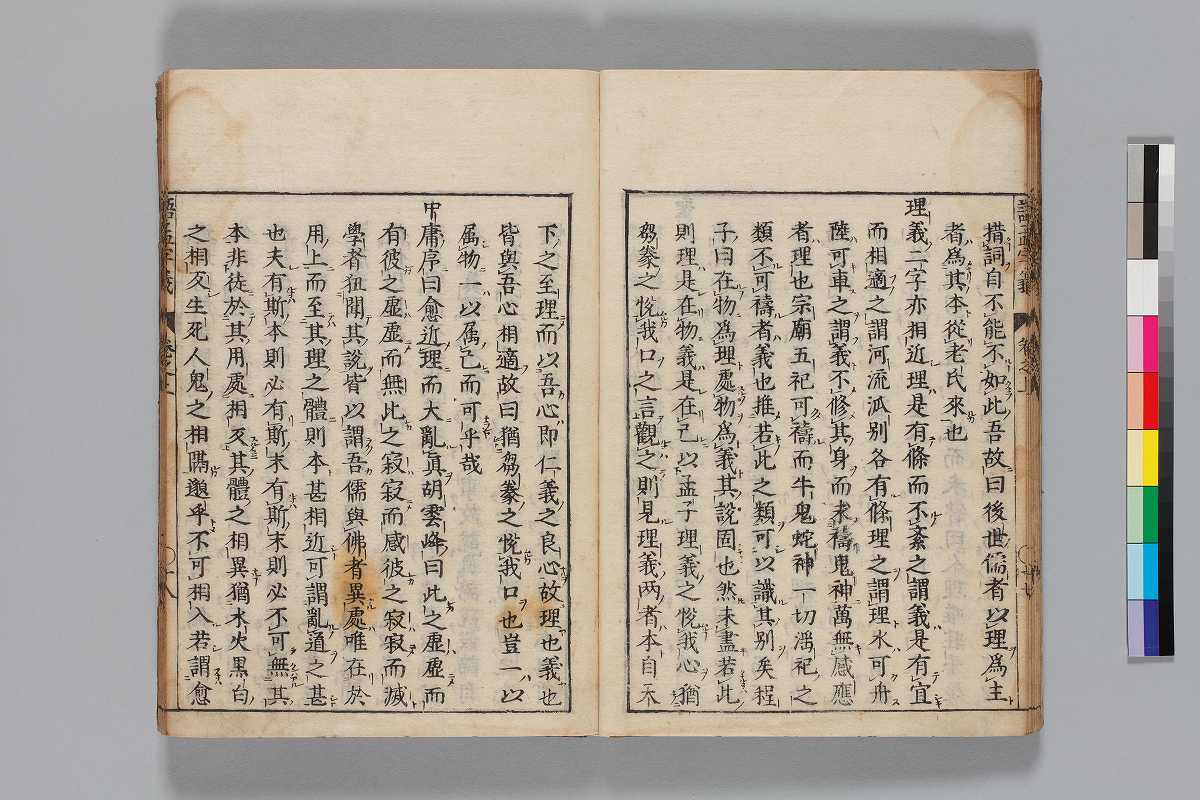 措詞自不能不如此吾故曰後世儒者以理爲主
者爲其本從老氏來也
理義二字亦相近理是有條而不紊之謂義是有宜
而相適之謂河流派別各有條理之謂理水可舟
陸可車之謂義不修其身而求禱鬼神萬無感應
者理也宗廟五祀可禱而牛鬼蛇神一切淫祀之
類不可禱者義也推若此之類可以識其別矣程
子曰在物爲理處物爲義其說固也然未盡若此
則理是在物義是在己以孟子理義之悅我心猶
芻豢之悅我口之言觀之則見理義兩者本自天
下之至理而以吾心即仁義之良心故理也義也
皆與吾心相適故曰猶芻豢之悅我口也豈一以
屬物一以屬己而可乎哉
中庸序曰愈近理而大亂眞胡雲峰曰此之虛虛而
有彼之虛虛而無此之寂寂而感彼之寂寂而滅
學者狃聞其說皆以謂吾儒與佛者異處唯在於
用上而至其理之體則本甚相近可謂亂道之甚
也夫有斯本則必有斯末有斯末則必不可無其
本非徒於其用處相反其體之相異猶水火黑白
之相反生死人鬼之相隔邈乎不可相入若謂愈
語孟字義 卷之上
十八